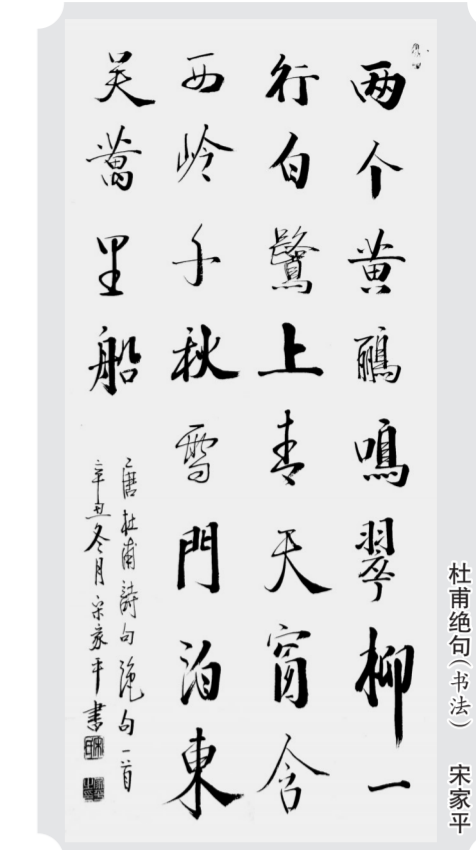 两个黄鸝鳴翠柳一
行白鷺上青天窗含
西岭千秋雪門泊東
吴萬里船
唐杜甫詩句绝句一首
辛丑冬月宋家平書
杜甫绝句（书法） 宋家平